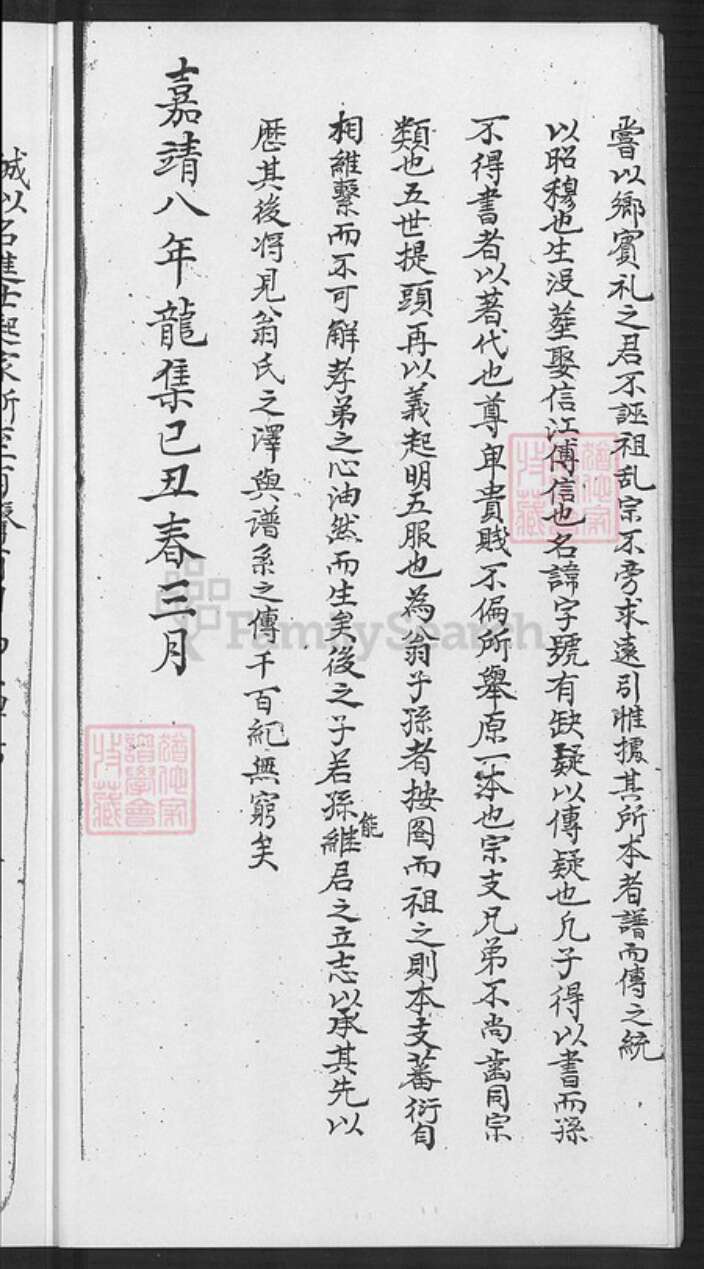 嘗以鄉賓礼之君不誣祖乱宗不旁求遠引惟據其所本者譜而傳之統
以昭穆也生没塟娶信江傅信也名諱字號有缺疑以傳疑也凢子得以書而孫
不得書者以著代也尊卑貴賤不偏所舉原一本也宗支兄弟不尚齒同宗
類也五世提頭再以義起明五服也為翁子孫者按图而祖之則本支蕃衍自
相維繫而不可解孝弟之心油然而生矣後之子若孫能維君之立志以承其先以
歷其後将見翁氏之澤與谱系之傳千百紀無窮矣
嘉靖八年龍集已丑春三月
FamilySearch